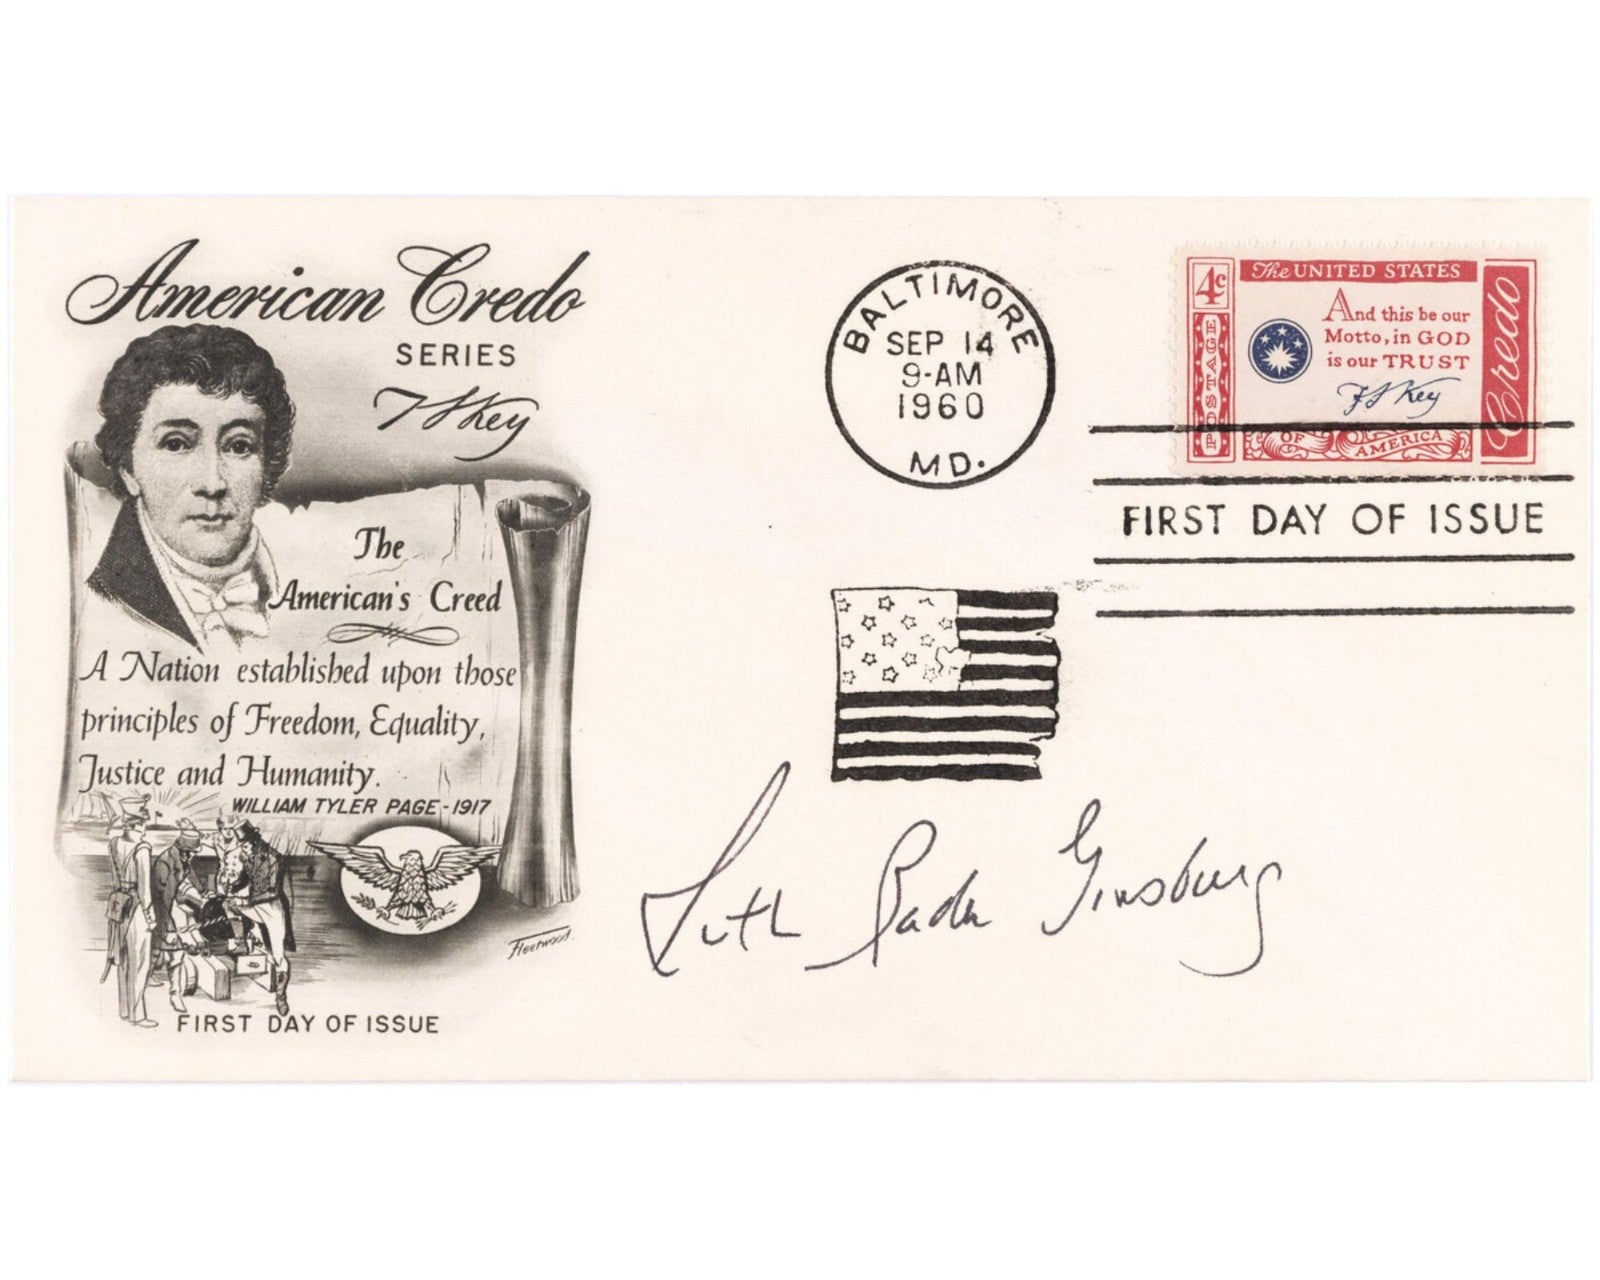 American Credo
SERIES
F S Key
The
American's Creed
A Nation established upon those
principles of Freedom, Equality,
Justice and Humanity.
WILLIAM TYLER PAGE - 1917
Fleetwood.
FIRST DAY OF ISSUE
BALTIMORE
SEP 14
9-AM
1960
MD.
4c
POSTAGE
The UNITED STATES
And this be our
Motto, in GOD
is our TRUST
F S Key
OF AMERICA
Credo
FIRST DAY OF ISSUE
Ruth Bader Ginsburg